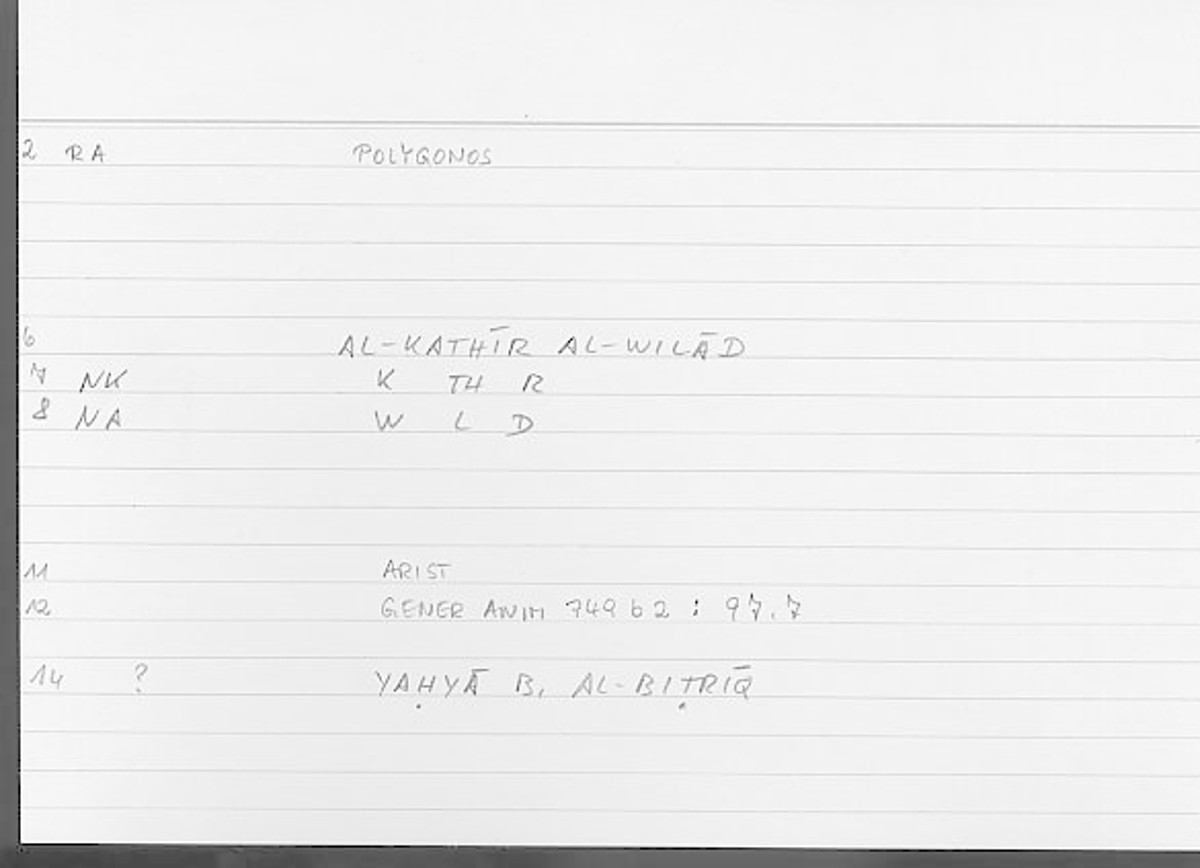 2 RA POLYGONOS
6 AL-KATHĪR AL-WILĀD
7 NK K TH R
8 NA W L D
11 ARIST
12 GENER ANIM 749 b 2 : 97.7
14 ? YAḤYĀ B. AL-BIṬRĪQ